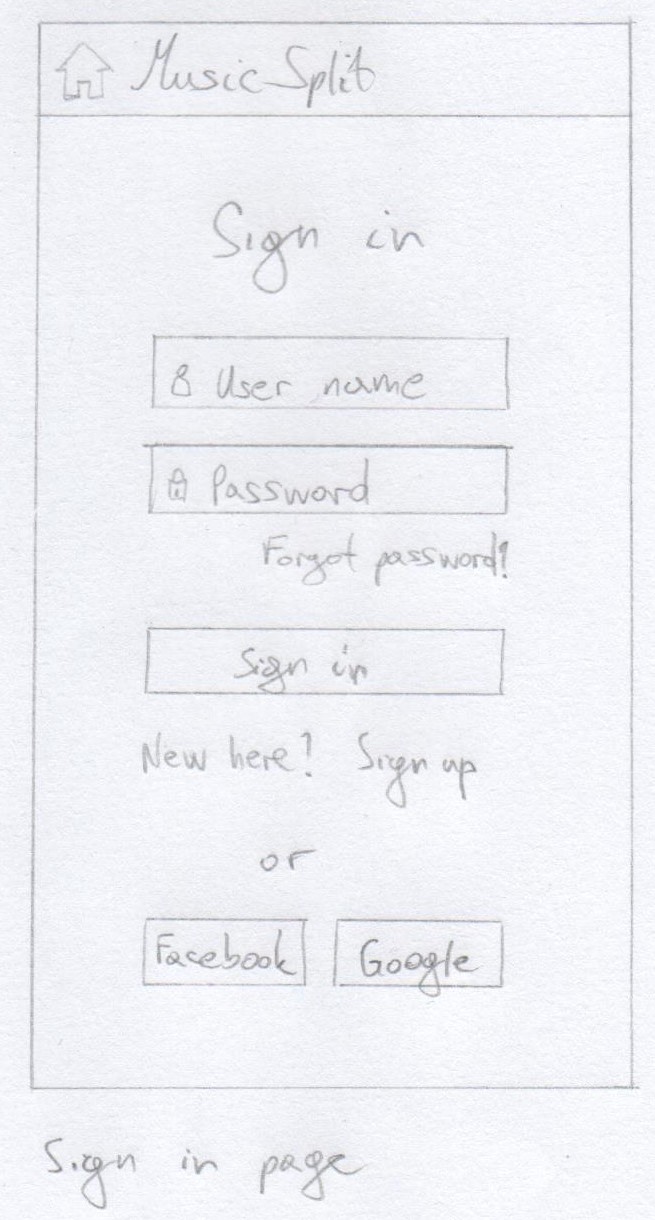 Music Split
Sign in
User name
Password
Forgot password?
Sign in
New here? Sign up
or
Facebook Google
Sign in page